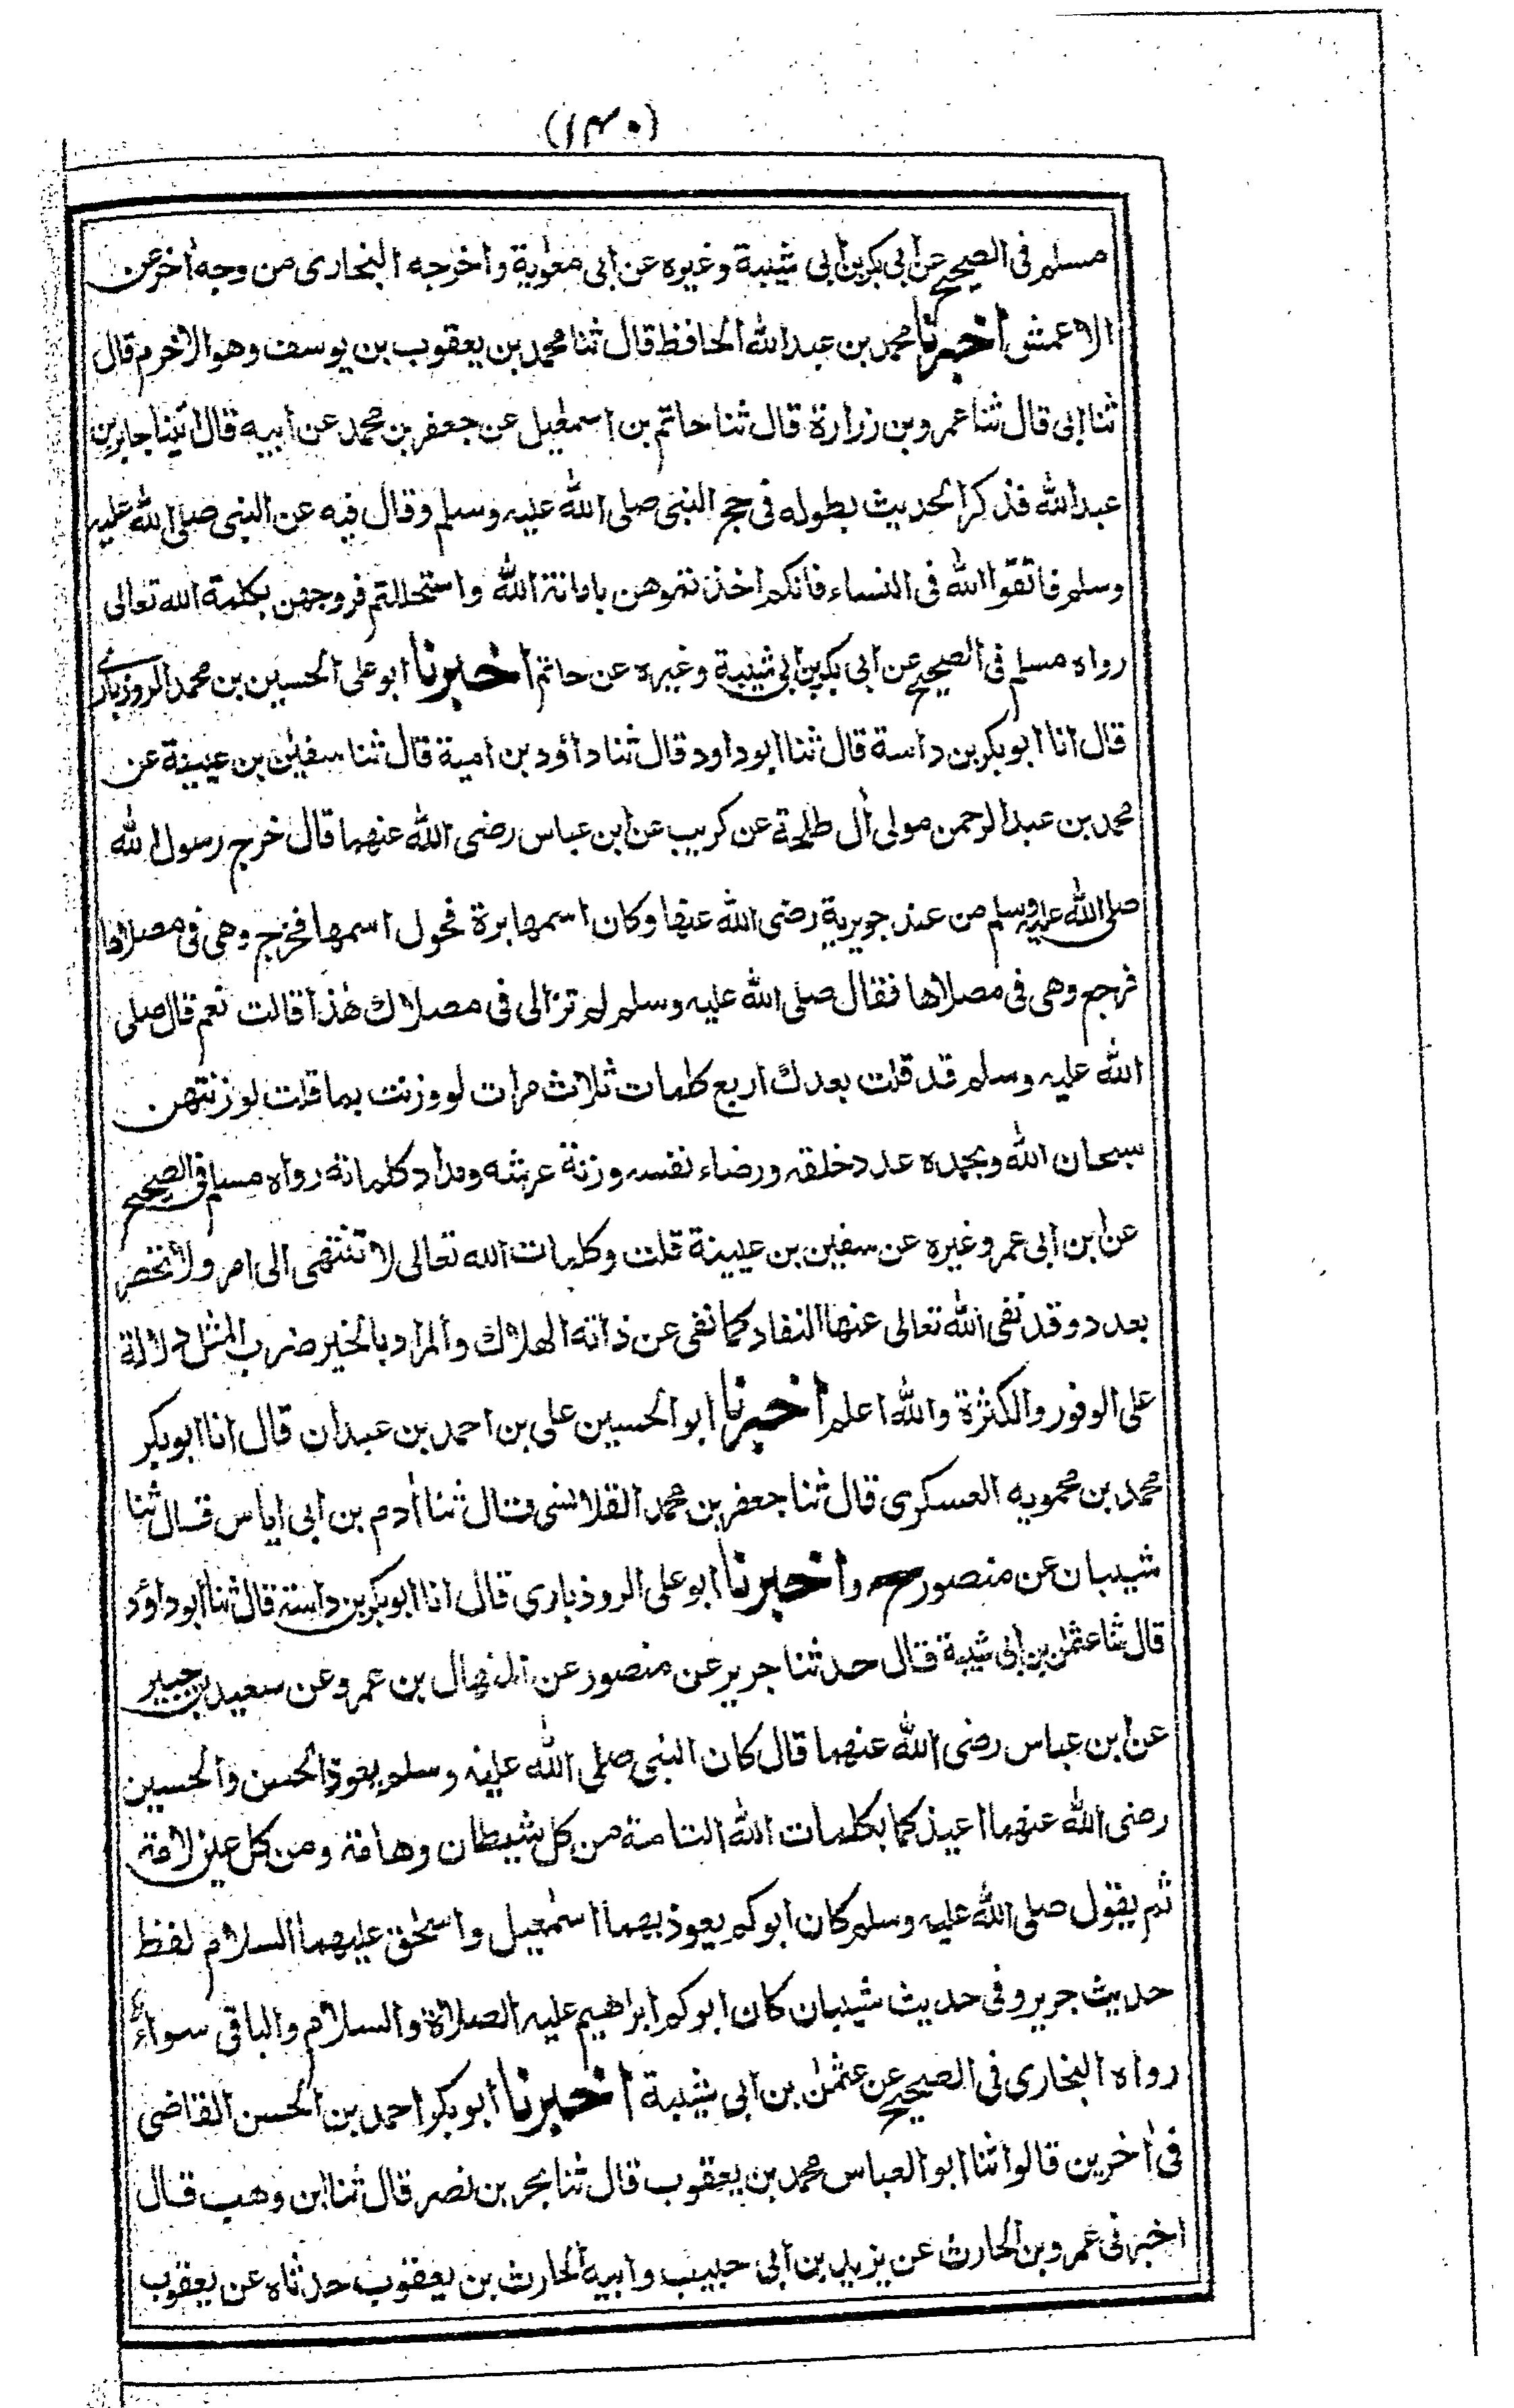 (١٤٠)
مسلم فى الصحيح عن أبى بكر بن أبى شيبة وغيره عن ابى معوية واخرجه البخارى من وجه اخر عن
الاعمش اخبرنا محمد بن عبد الله الحافظ قال ثنا محمد بن يعقوب بن يوسف وهو الاخرم قال
ثنا ابى قال ثنا عمرو بن زرارة قال ثنا حاتم بن اسمعيل عن جعفر بن محمد عن ابيه قال اتينا جابر بن
عبد الله فذكر الحديث بطوله فى حج النبى صلى الله عليه وسلم وقال فيه عن النبى صلى الله عليه
وسلم فاتقوا الله فى النساء فانكم اخذتموهن بامانة الله واستحللتم فروجهن بكلمة الله تعالى
رواه مسلم فى الصحيح عن ابى بكر بن ابى شيبة وغيره عن حاتم اخبرنا ابو على الحسين بن محمد الروذبارى
قال انا ابو بكر بن داسة قال ثنا ابو داود قال ثنا داؤد بن امية قال ثنا سفين بن عيينة عن
محمد بن عبد الرحمن مولى أل طلحة عن كريب عن ابن عباس رضى الله عنهما قال خرج رسول الله
صلى الله عليه وسلم من عند جويرية رضى الله عنها وكان اسمها برة فحول اسمها فخرج وهى فى مصلاها
فرجع وهى فى مصلاها فقال صلى الله عليه وسلم لم تزالى فى مصلاك هذا قالت نعم قال صلى
الله عليه وسلم قد قلت بعدك اربع كلمات ثلاث مرات لو وزنت بما قلت لوزنتهن
سبحان الله وبحمده عدد خلقه ورضاء نفسه وزنة عرشه ومداد كلماته رواه مسلم فى الصحيح
عن ابن ابى عمر وغيره عن سفين بن عيينة قلت وكلمات الله تعالى لا تنتهى الى امر ولا تحصر
بعدد وقد نفى الله تعالى عنها النفاد كما نفى عن ذاته الهلاك والمراد بالخبر ضرب المثل دلالة
على الوفور والكثرة والله اعلم اخبرنا ابو الحسين على بن احمد بن عبدان قال انا ابو بكر
محمد بن محمويه العسكرى قال ثنا جعفر بن محمد القلانسى قال ثنا أدم بن ابى اياس قال ثنا
شيبان عن منصور ح واخبرنا ابو على الروذبارى قال انا ابو بكر بن داسة قال ثنا ابو داؤد
قال ثنا عثمن بن ابى شيبة قال حدثنا جرير عن منصور عن المنهال بن عمرو عن سعيد بن جبير
عن ابن عباس رضى الله عنهما قال كان النبى صلى الله عليه وسلم يعوذ الحسن والحسين
رضى الله عنهما اعيذكما بكلمات الله التامة من كل شيطان وهامة ومن كل عين لامة
ثم يقول صلى الله عليه وسلم كان ابوكم يعوذ بهما اسمعيل واسحق عليهما السلام لفظ
حديث جرير وفى حديث شيبان كان ابوكم ابراهيم عليه الصلاة والسلام والباقى سواء
رواه البخارى فى الصحيح عن عثمن بن ابى شيبة اخبرنا ابو بكر احمد بن الحسن القاضى
فى اخرين قالوا ثنا ابو العباس محمد بن يعقوب قال ثنا بحر بن نصر قال ثنا ابن وهب قال
اخبرنى عمرو بن الحارث عن يزيد بن ابى حبيب وابيه الحارث بن يعقوب حدثاه عن يعقوب